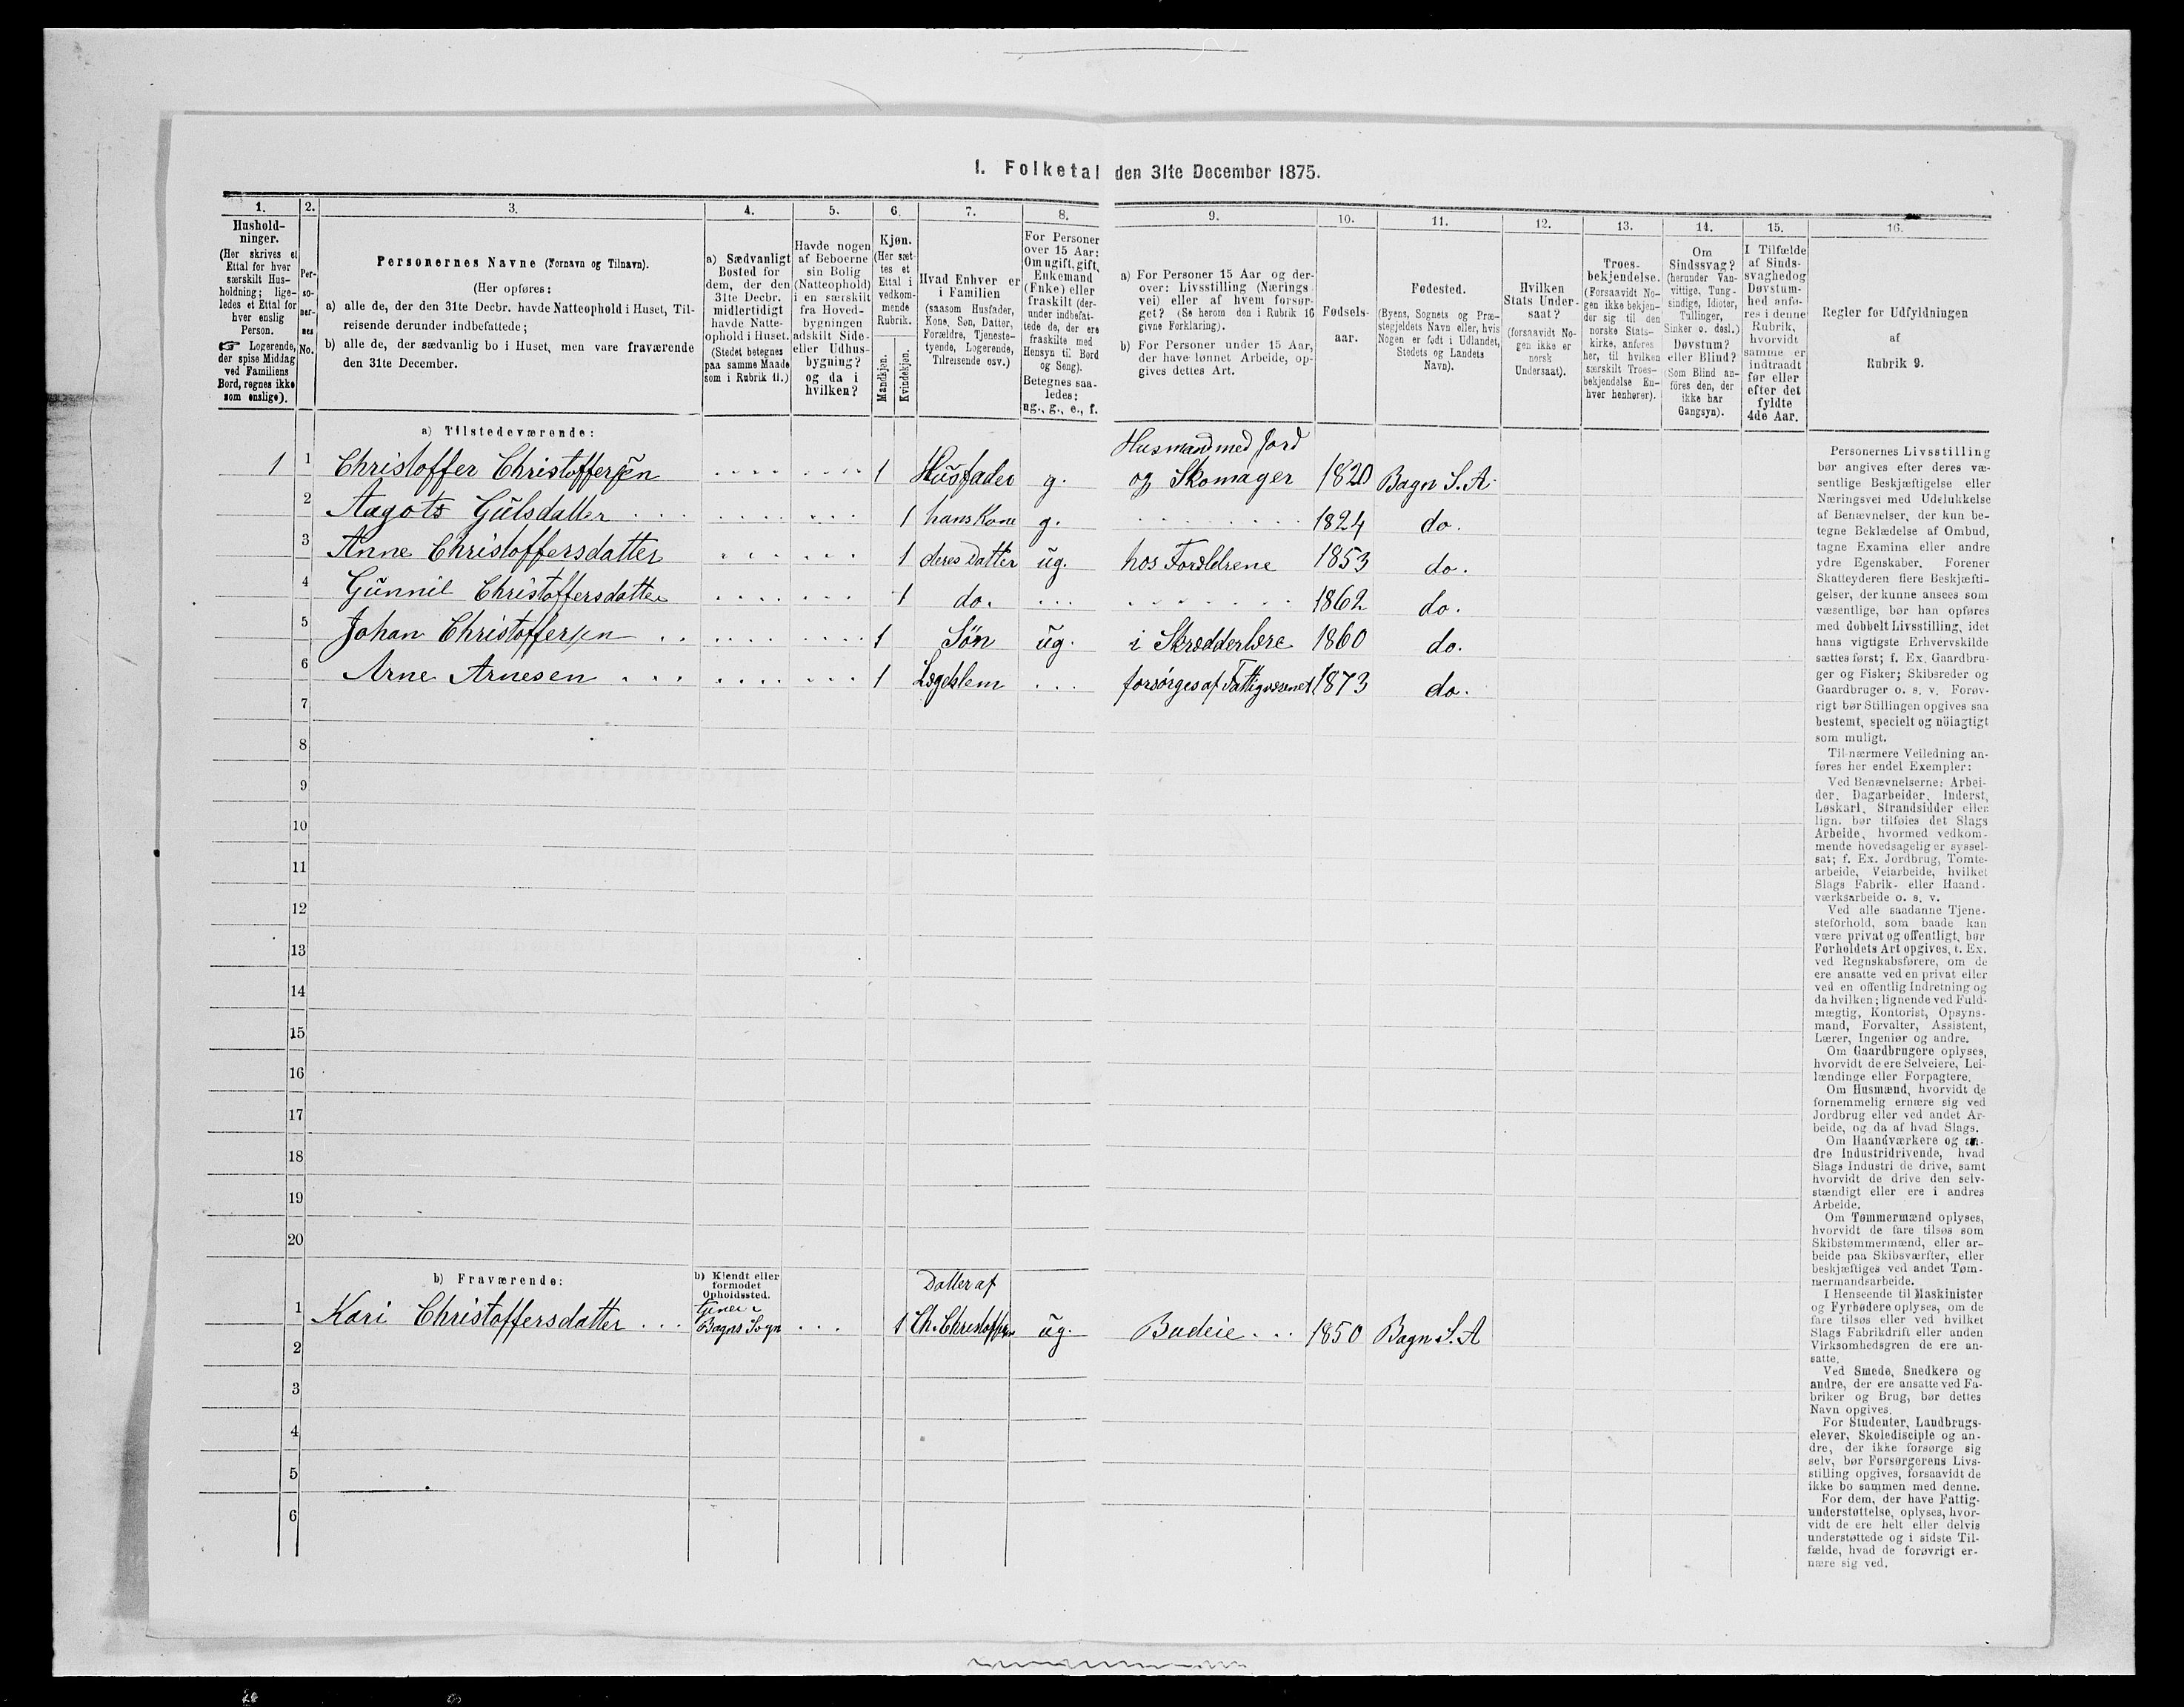 1. Folketal den 31te December 1875.
1.
2.
3.
4.
5.
6.
7.
8.
9.
10.
11.
12.
13.
14.
15.
16.
Hushold-
ninger.
(Her skrives et
Ettal for hver
særskilt Hus-
holdning; lige-
ledes et Ettal for
hver enslig
Person.
☞ Logerende,
der spise Middag
ved Familiens
Bord, regnes ikke
som enslige).
Per-
so-
ner-
nes
No.
Personernes Navne (Fornavn og Tilnavn).
(Her opføres:
a) alle de, der den 31te Decbr. havde Natteophold i Huset, Til-
reisende derunder indbefattede;
b) alle de, der sædvanlig bo i Huset, men vare fraværende
den 31te December.
a) Sædvanligt
Bosted for
dem, der den
31te Decbr.
midlertidigt
havde Natte-
ophold i Huset.
(Stedet betegnes
paa samme Maade
som i Rubrik 11.)
Havde nogen
af Beboerne
sin Bolig
(Natteophold)
i en særskilt
fra Hoved-
bygningen
adskilt Side-
eller Udhus-
bygning?
og da i
hvilken?
Kjøn.
(Her sæt-
tes et
Ettal i
vedkom-
mende
Rubrik.
Mandkjøn.
Kvindekjøn.
Hvad Enhver er
i Familien
(saasom Husfader,
Kone, Søn, Datter,
Forældre, Tjeneste-
tyende, Logerende,
Tilreisende osv.)
For Personer
over 15 Aar:
Om ugift, gift,
Enkemand
(Enke) eller
fraskilt (der-
under indbefat-
tede de, der ere
fraskilte med
Hensyn til Bord
og Seng).
Betegnes saa-
ledes:
ug., g., e., f.
a) For Personer 15 Aar og der-
over: Livsstilling (Nærings-
vei) eller af hvem forsør-
get? (Se herom den i Rubrik 16
givne Forklaring).
b) For Personer under 15 Aar,
der have lønnet Arbeide, op-
gives dettes Art.
Fødsels-
aar.
Fødested.
(Byens, Sognets og Præ-
stegjeldets Navn eller, hvis
Nogen er født i Udlandet,
Stedets og Landets
Navn).
Hvilken
Stats Under-
saat?
(forsaavidt No-
gen ikke er
norsk
Undersaat).
Troes-
bekjendelse.
(Forsaavidt No-
gen ikke bekjen-
der sig til den
norske Stats-
kirke, anføres
her, til hvilken
særskilt Troes-
bekjendelse En-
hver henhører).
Om
Sindssvag?
(herunder Van-
vittige, Tung-
sindige, Idioter,
Tullinger,
Sinker o. desl.)
Døvstum?
eller Blind?
(Som Blind an-
føres den, der
ikke har
Gangsyn).
I Tilfælde
af Sinds-
svaghed og
Døvstum-
hed anfø-
res i denne
Rubrik,
hvorvidt
samme er
indtraadt
før eller
efter det
fyldte
4de Aar.
Regler for Udfyldningen
af
Rubrik 9.
a) Tilstedeværende:
Husmand med Jord
1 1 Christoffer Christoffersen 1 Husfader g. og Skomager 1820 Bagn S. A.
2 Aagots Gulsdatter 1 hans Kone g. 1824 do.
3 Anne Christoffersdatter 1 deres Datter ug. hos Forældrene 1853 do.
4 Gunnil Christoffersdatter 1 do. 1862 do.
5 Johan Christoffersen 1 Søn ug. i Skrædderlære 1860 do.
6 Arne Arnesen 1 Lægdslem forsørges af Fattigvæsenet 1873 do.
7
8
9
10
11
12
13
14
15
16
17
18
19
20
b) Fraværende:
b) Kjendt eller
formodet
Opholdssted.
Datter af
1 Kari Christoffersdatter Bagns Sogn 1 Ch. Christoffersen ug. Budeie 1850 Bagn S. A
2
3
4
5
6
Personernes Livsstilling
bør angives efter deres væ-
sentlige Beskjæftigelse eller
Næringsvei med Udelukkelse
af Benævnelser, der kun be-
tegne Beklædelse af Ombud,
tagne Examina eller andre
ydre Egenskaber. Forener
Skatteyderen flere Beskjæfti-
gelser, der kunne ansees som
væsentlige, bør han opføres
med dobbelt Livsstilling, idet
hans vigtigste Erhvervskilde
sættes først; f. Ex. Gaardbru-
ger og Fisker; Skibsreder og
Gaardbruger o. s. v. Forøv-
rigt bør Stillingen opgives saa
bestemt, specielt og nöiagtigt
som muligt.
Til nærmere Veiledning an-
føres her endel Exempler:
Ved Benævnelserne: Arbei-
der, Dagarbeider, Inderst,
Løskarl, Strandsidder eller
lign. bør tilføies det Slags
Arbeide, hvormed vedkom-
mende hovedsagelig er syssel-
sat; f. Ex. Jordbrug, Tomte-
arbeide, Veiarbeide, hvilket
Slags Fabrik- eller Haand-
værksarbeide o. s. v.
Ved alle saadanne Tjene-
steforhold, som baade kan
være privat og offentligt, bør
Forholdets Art opgives, t. Ex.
ved Regnskabsførere, om de
ere ansatte ved en privat eller
ved en offentlig Indretning og
da hvilken; lignende ved Fuld-
mægtig, Kontorist, Opsyns-
mand, Forvalter, Assistent,
Lærer, Ingeniør og andre.
Om Gaardbrugere oplyses,
hvorvidt de ere Selveiere, Lei-
lændinge eller Forpagtere.
Om Husmænd, hvorvidt de
fornemmelig ernære sig ved
Jordbrug eller ved andet Ar-
beide, og da af hvad Slags.
Om Haandværkere og an-
dre Industridrivende, hvad
Slags Industri de drive, samt
hvorvidt de drive den selv-
stændigt eller ere i andres
Arbeide.
Om Tømmermænd oplyses,
hvorvidt de fare tilsøs som
Skibstømmermænd, eller ar-
beide paa Skibsværfter, eller
beskjæftiges ved andet Tøm-
mermandsarbeide.
I Henseende til Maskinister
og Fyrbødere oplyses, om de
fare tilsøs eller ved hvilket
Slags Fabrikdrift eller anden
Virksomhedsgren de ere an-
satte.
Ved Smede, Snedkere og
andre, der ere ansatte ved Fa-
briker og Brug, bør dettes
Navn opgives.
For Studenter, Landbrugs-
elever, Skoledisciple og an-
dre, der ikke forsørge sig
selv, bør Forsørgerens Livs-
stilling opgives, forsaavidt de
ikke bo sammen med denne.
For dem, der have Fattig-
understøttelse, oplyses, hvor-
vidt de ere helt eller delvis
understøttede og i sidste Til-
fælde, hvad de forøvrigt er-
nære sig ved.